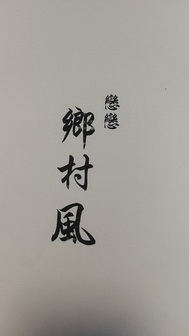 戀戀
鄉村風